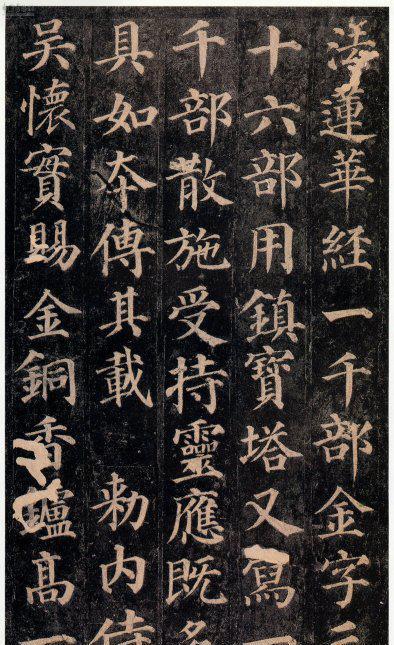 法蓮華経一千部金字三
十六部用鎮寶塔又寫一
千部散施受持靈應既多
具如夲傳其載 勅内侍
吴懷實賜金銅香鑪高一